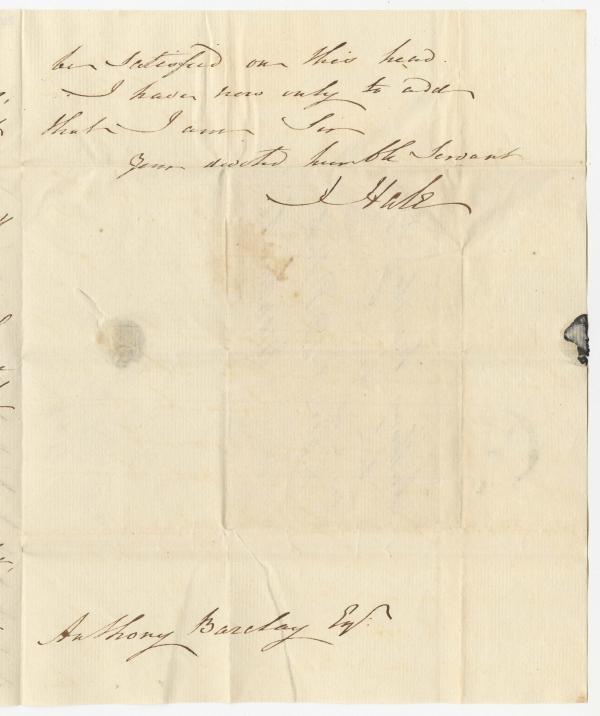 be satisfied on this head.
I have now only to add
that I am Sir
your devoted humble Servant
J Hale
Anthony Barclay Esqr.